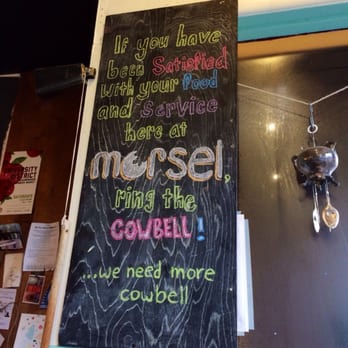 If you have
been Satisfied
with your food
and service
here at
morsel,
ring the
COWBELL!
...we need more
cowbell